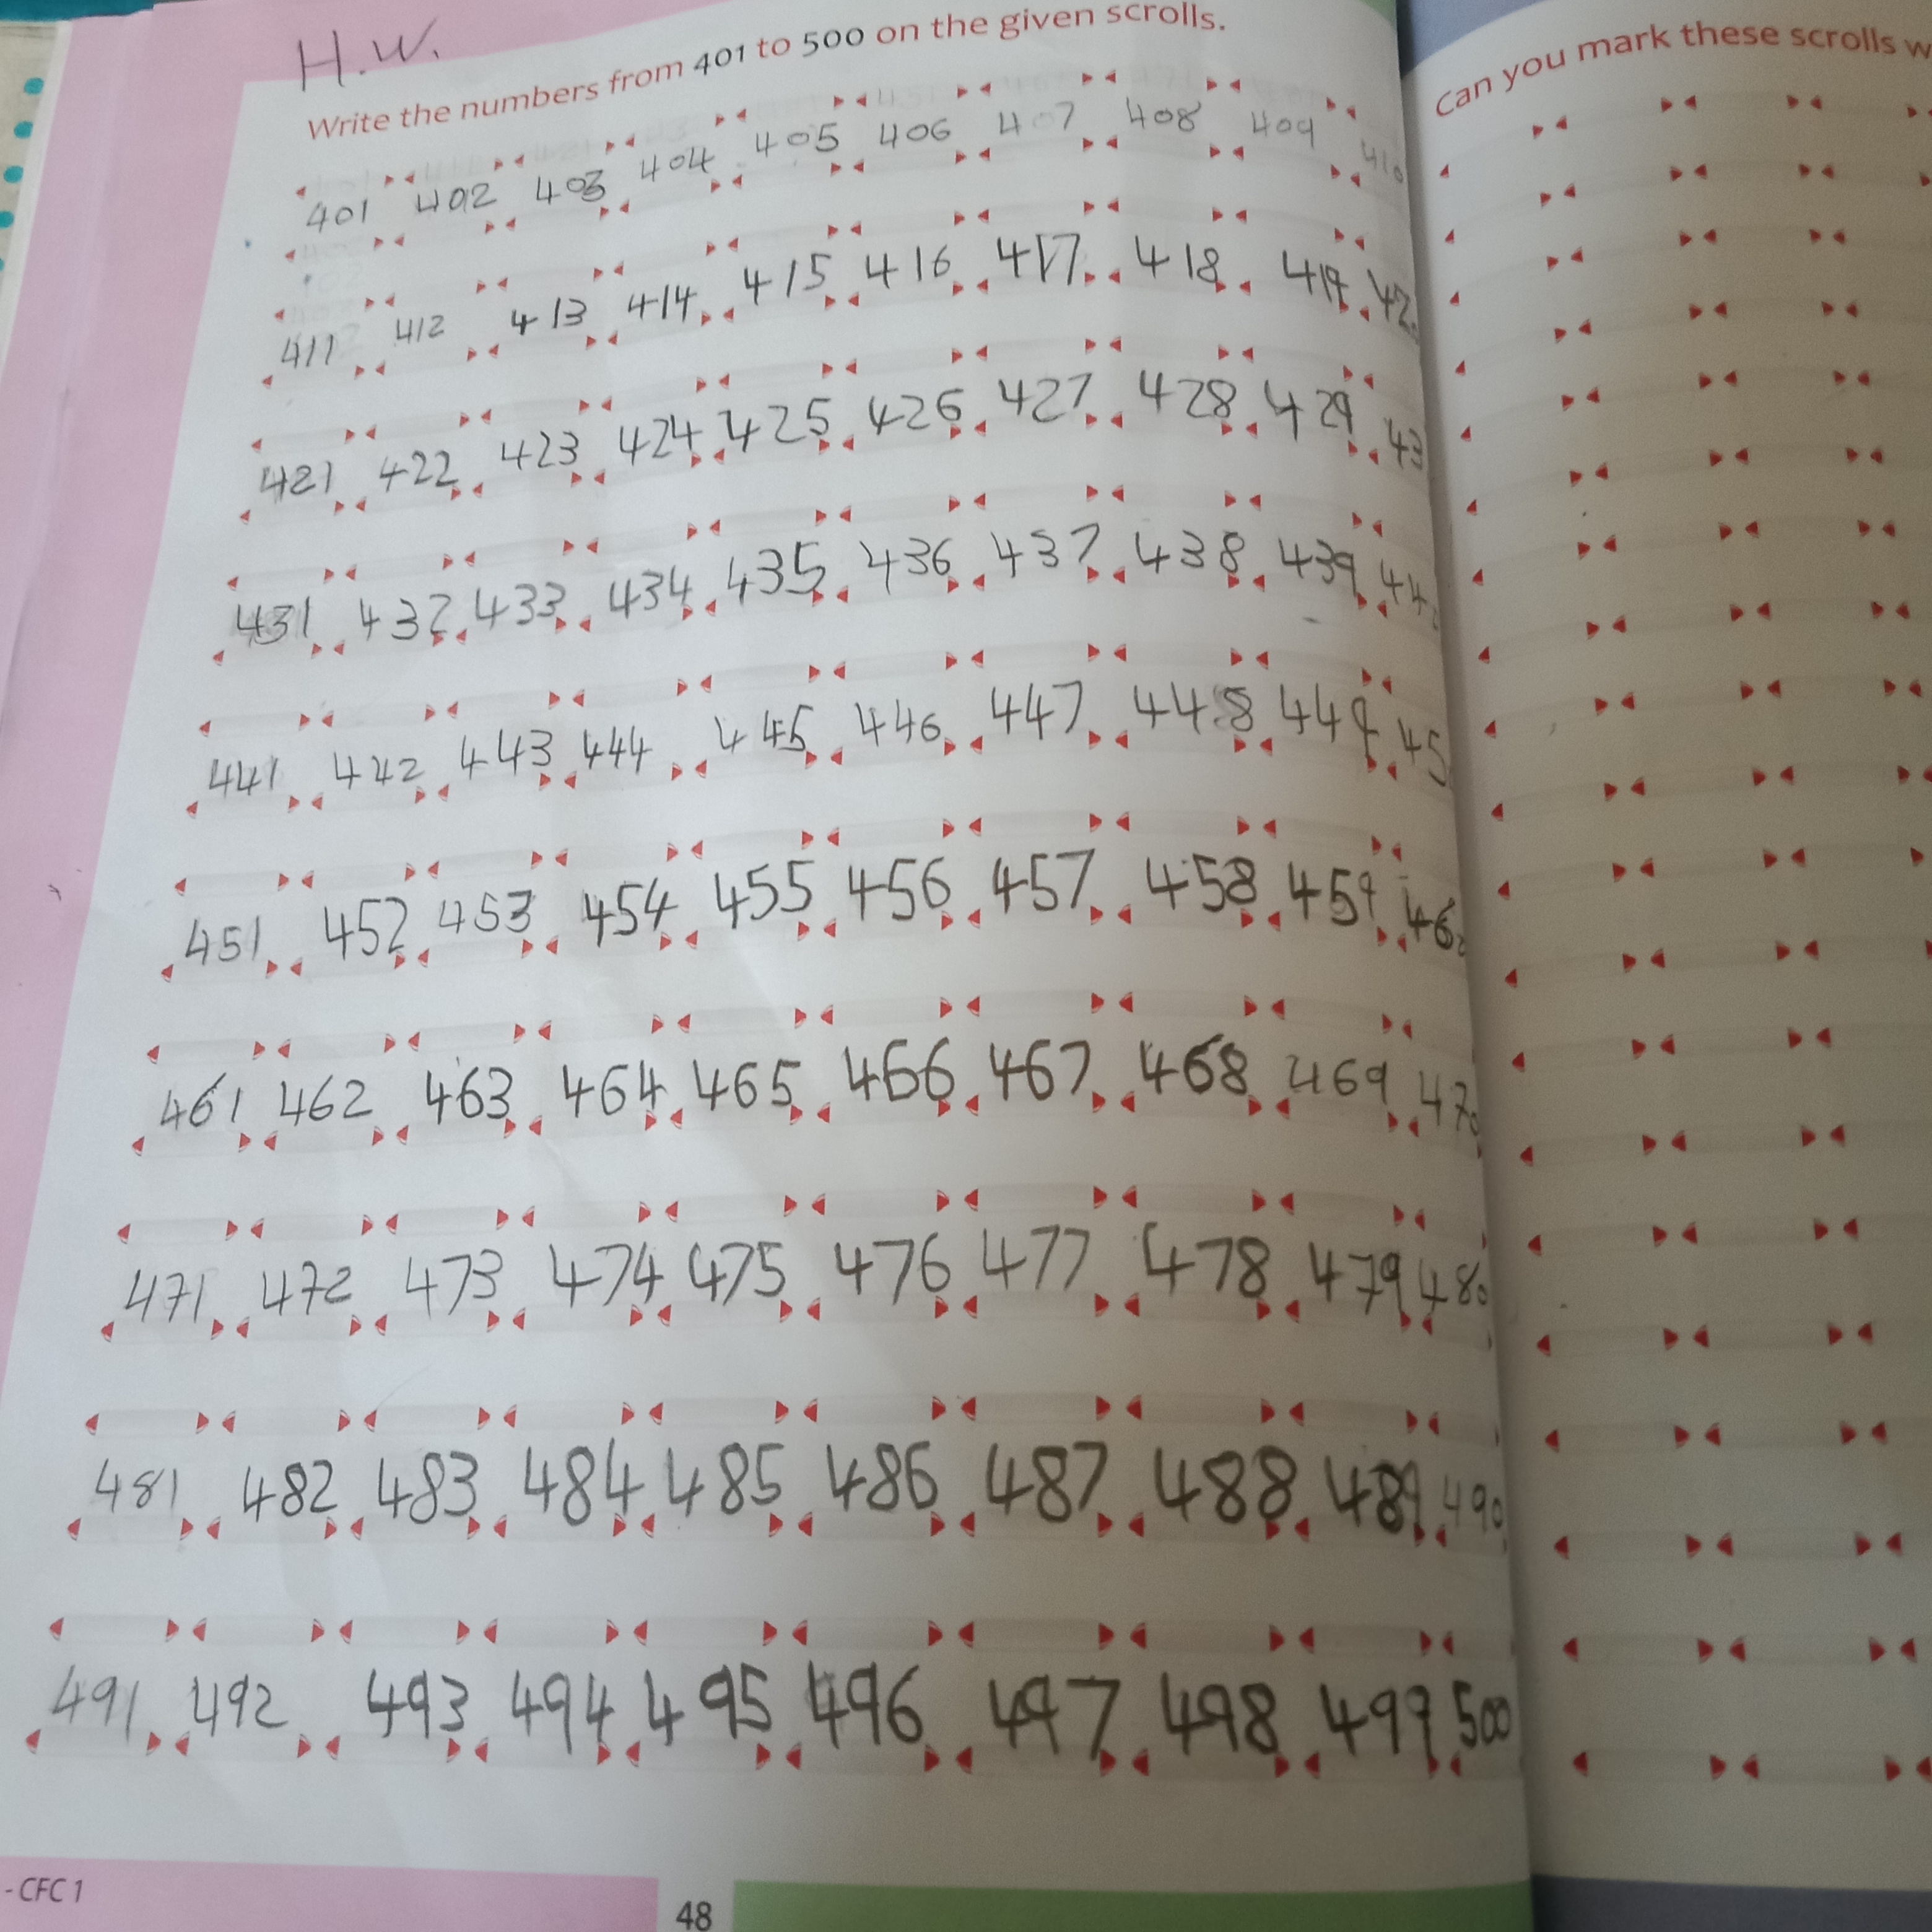 H.W.
Write the numbers from 401 to 500 on the given scrolls.
401 402 403 404 405 406 407 408 409 410
411 412 413 414 415 416 417 418 419 42
421 422 423 424 425 426 427 428 429 43
431 432 433 434 435 436 437 438 439 44
441 442 443 444 445 446 447 448 449 45
451 452 453 454 455 456 457 458 459 460
461 462 463 464 465 466 467 468 469 470
471 472 473 474 475 476 477 478 479 480
481 482 483 484 485 486 487 488 489 490
491 492 493 494 495 496 497 498 499 500
- CFC 1
48
Can you mark these scrolls w